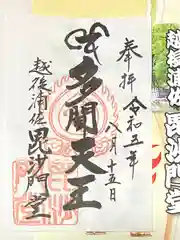 奉拝 令和五年
八月十五日
多聞天王
越後浦佐 毘沙門堂
越後浦佐 毘沙門堂